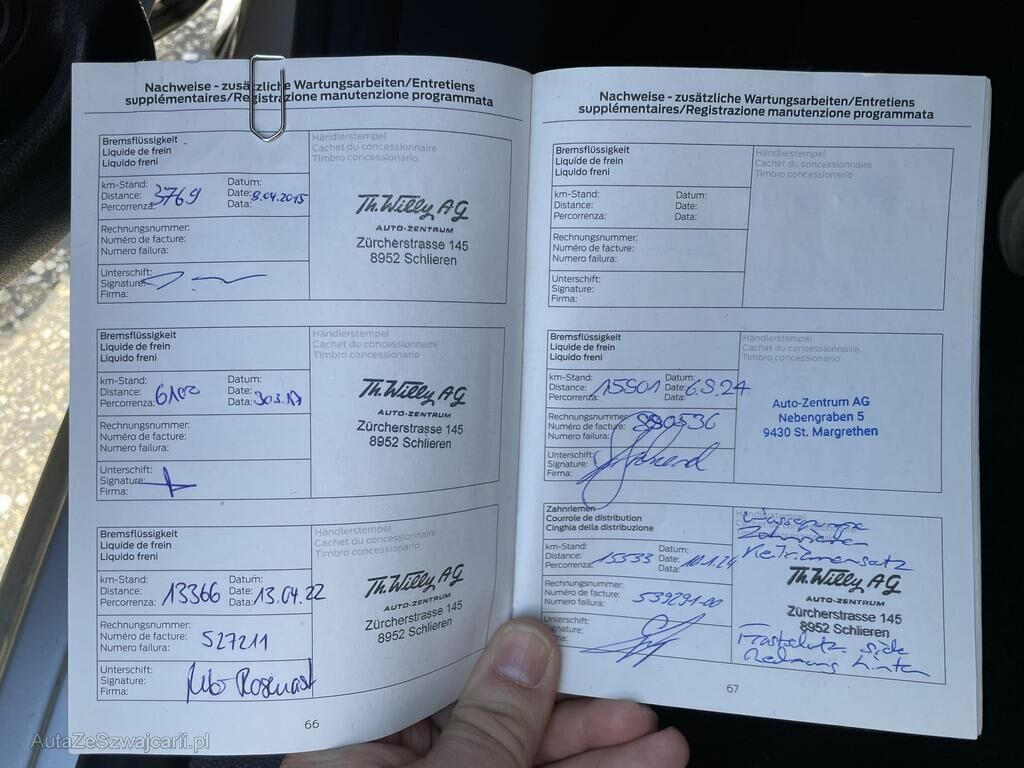 Nachweise - zusätzliche Wartungsarbeiten/Entretiens
supplémentaires/Registrazione manutenzione programmata
Bremsflüssigkeit
Liquide de frein
Liquido freni
Händlerstempel
Cachet du concessionnaire
Timbro concessionario
km-Stand:
Distance:
Percorrenza:
3769
Datum:
Date:
Data:
8.04.2015
Rechnungsnummer:
Numéro de facture:
Numero failura:
Unterschift:
Signature:
Firma:
Th. Willy AG
AUTO-ZENTRUM
Zürcherstrasse 145
8952 Schlieren
Bremsflüssigkeit
Liquide de frein
Liquido freni
Händlerstempel
Cachet du concessionnaire
Timbro concessionario
km-Stand:
Distance:
Percorrenza:
Datum:
Date:
Data:
Rechnungsnummer:
Numéro de facture:
Numero failura:
Unterschift:
Signature:
Firma:
Th. Willy AG
AUTO-ZENTRUM
Zürcherstrasse 145
8952 Schlieren
Bremsflüssigkeit
Liquide de frein
Liquido freni
Händlerstempel
Cachet du concessionnaire
Timbro concessionario
km-Stand:
Distance:
Percorrenza:
13366
Datum:
Date:
Data:
13.04.22
Rechnungsnummer:
Numéro de facture:
Numero failura:
527211
Unterschift:
Signature:
Firma:
Th. Willy AG
AUTO-ZENTRUM
Zürcherstrasse 145
8952 Schlieren
66
Nachweise - zusätzliche Wartungsarbeiten/Entretiens
supplémentaires/Registrazione manutenzione programmata
Bremsflüssigkeit
Liquide de frein
Liquido freni
Händlerstempel
Cachet du concessionnaire
Timbro concessionario
km-Stand:
Distance:
Percorrenza:
Datum:
Date:
Data:
Rechnungsnummer:
Numéro de facture:
Numero failura:
Unterschift:
Signature:
Firma:
Bremsflüssigkeit
Liquide de frein
Liquido freni
Händlerstempel
Cachet du concessionnaire
Timbro concessionario
km-Stand:
Distance:
Percorrenza:
15901
Datum:
Date:
Data:
Rechnungsnummer:
Numéro de facture:
Numero failura:
Unterschift:
Signature:
Firma:
Auto-Zentrum AG
Nebengraben 5
9430 St. Margrethen
Zahnriemen
Courroie de distribution
Cinghia della distribuzione
Wasserpumpe
Zahnriemen
Keilriemensatz
km-Stand:
Distance:
Percorrenza:
15533
Datum:
Date:
Data:
10.1.24
Rechnungsnummer:
Numéro de facture:
Numero failura:
539291-00
Unterschift:
Th. Willy AG
AUTO-ZENTRUM
Zürcherstrasse 145
8952 Schlieren
Frostschutz siehe
Rechnung hinten
67
AutaZeSzwajcarii.pl